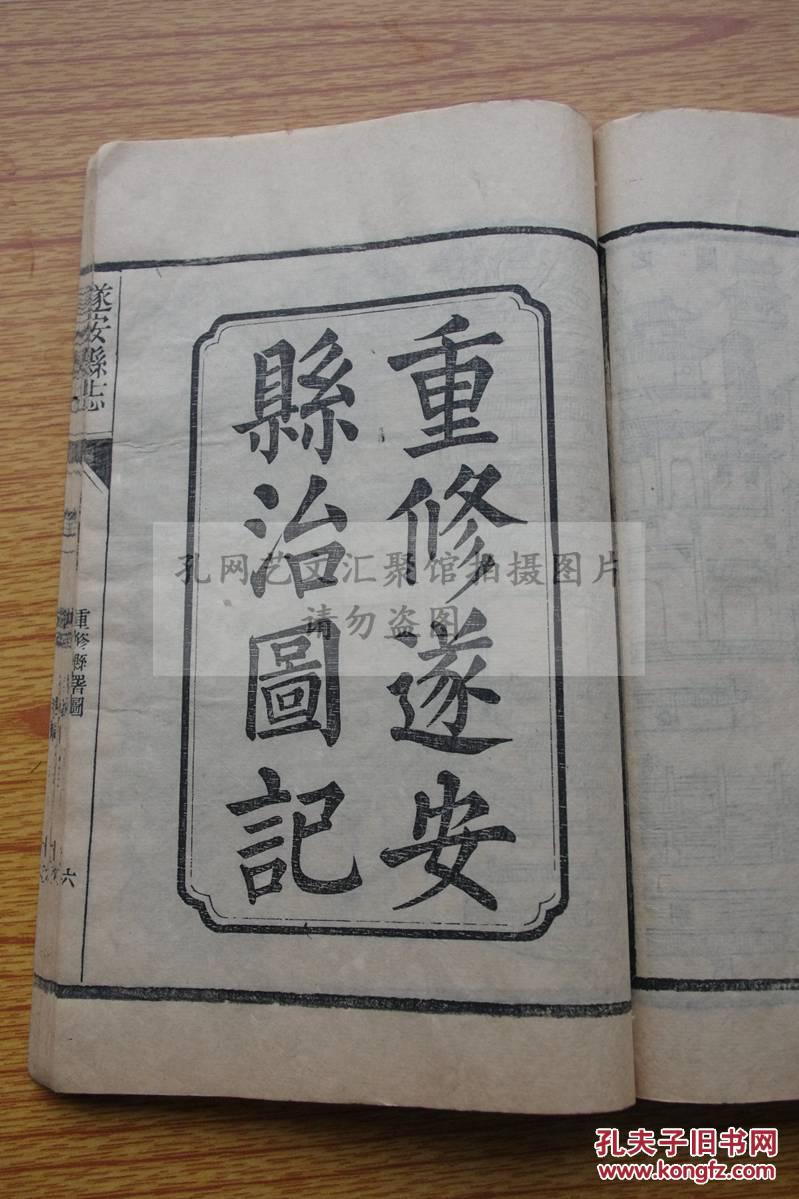 重修遂安
縣治圖記
遂安縣志
重修縣署圖
六
孔网艺文汇聚馆拍摄图片
请勿盗图
孔夫子旧书网
www.kongfz.com